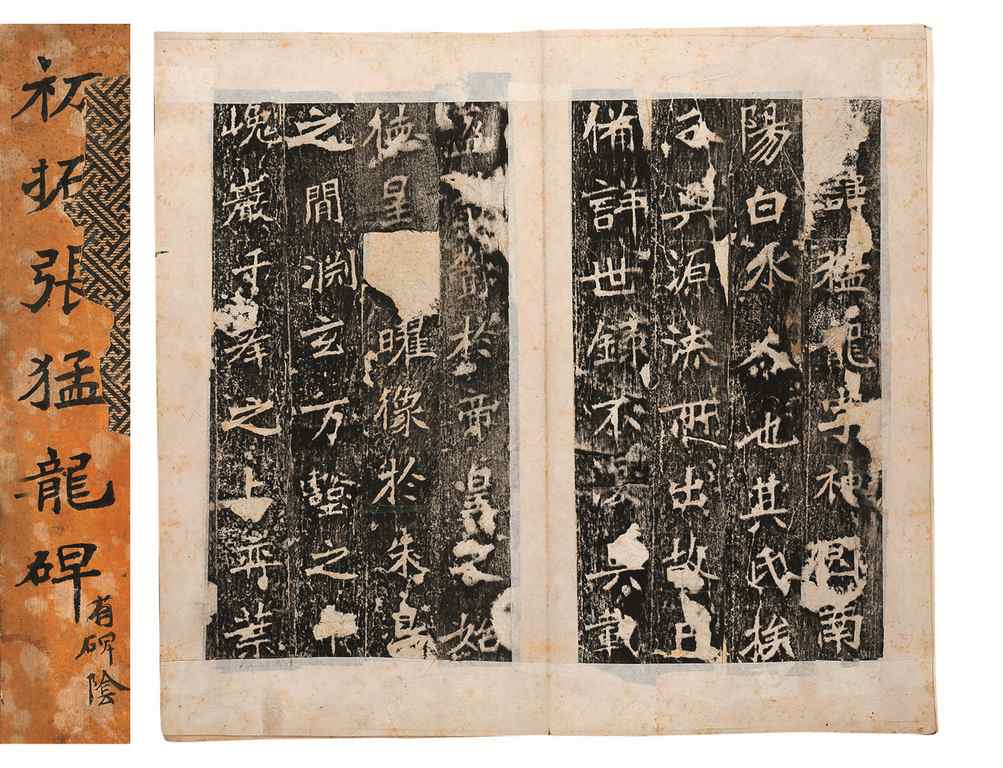 初拓張猛龍碑
有碑陰
諱猛龍字神囧南
陽白水人也其氏族
分興源流所出故已
備詳世録不復具載
蕤於帝皇之始
徳星曜像於朱鳥
之間淵玄万壑之中
嵬巖千峰之上弈葉